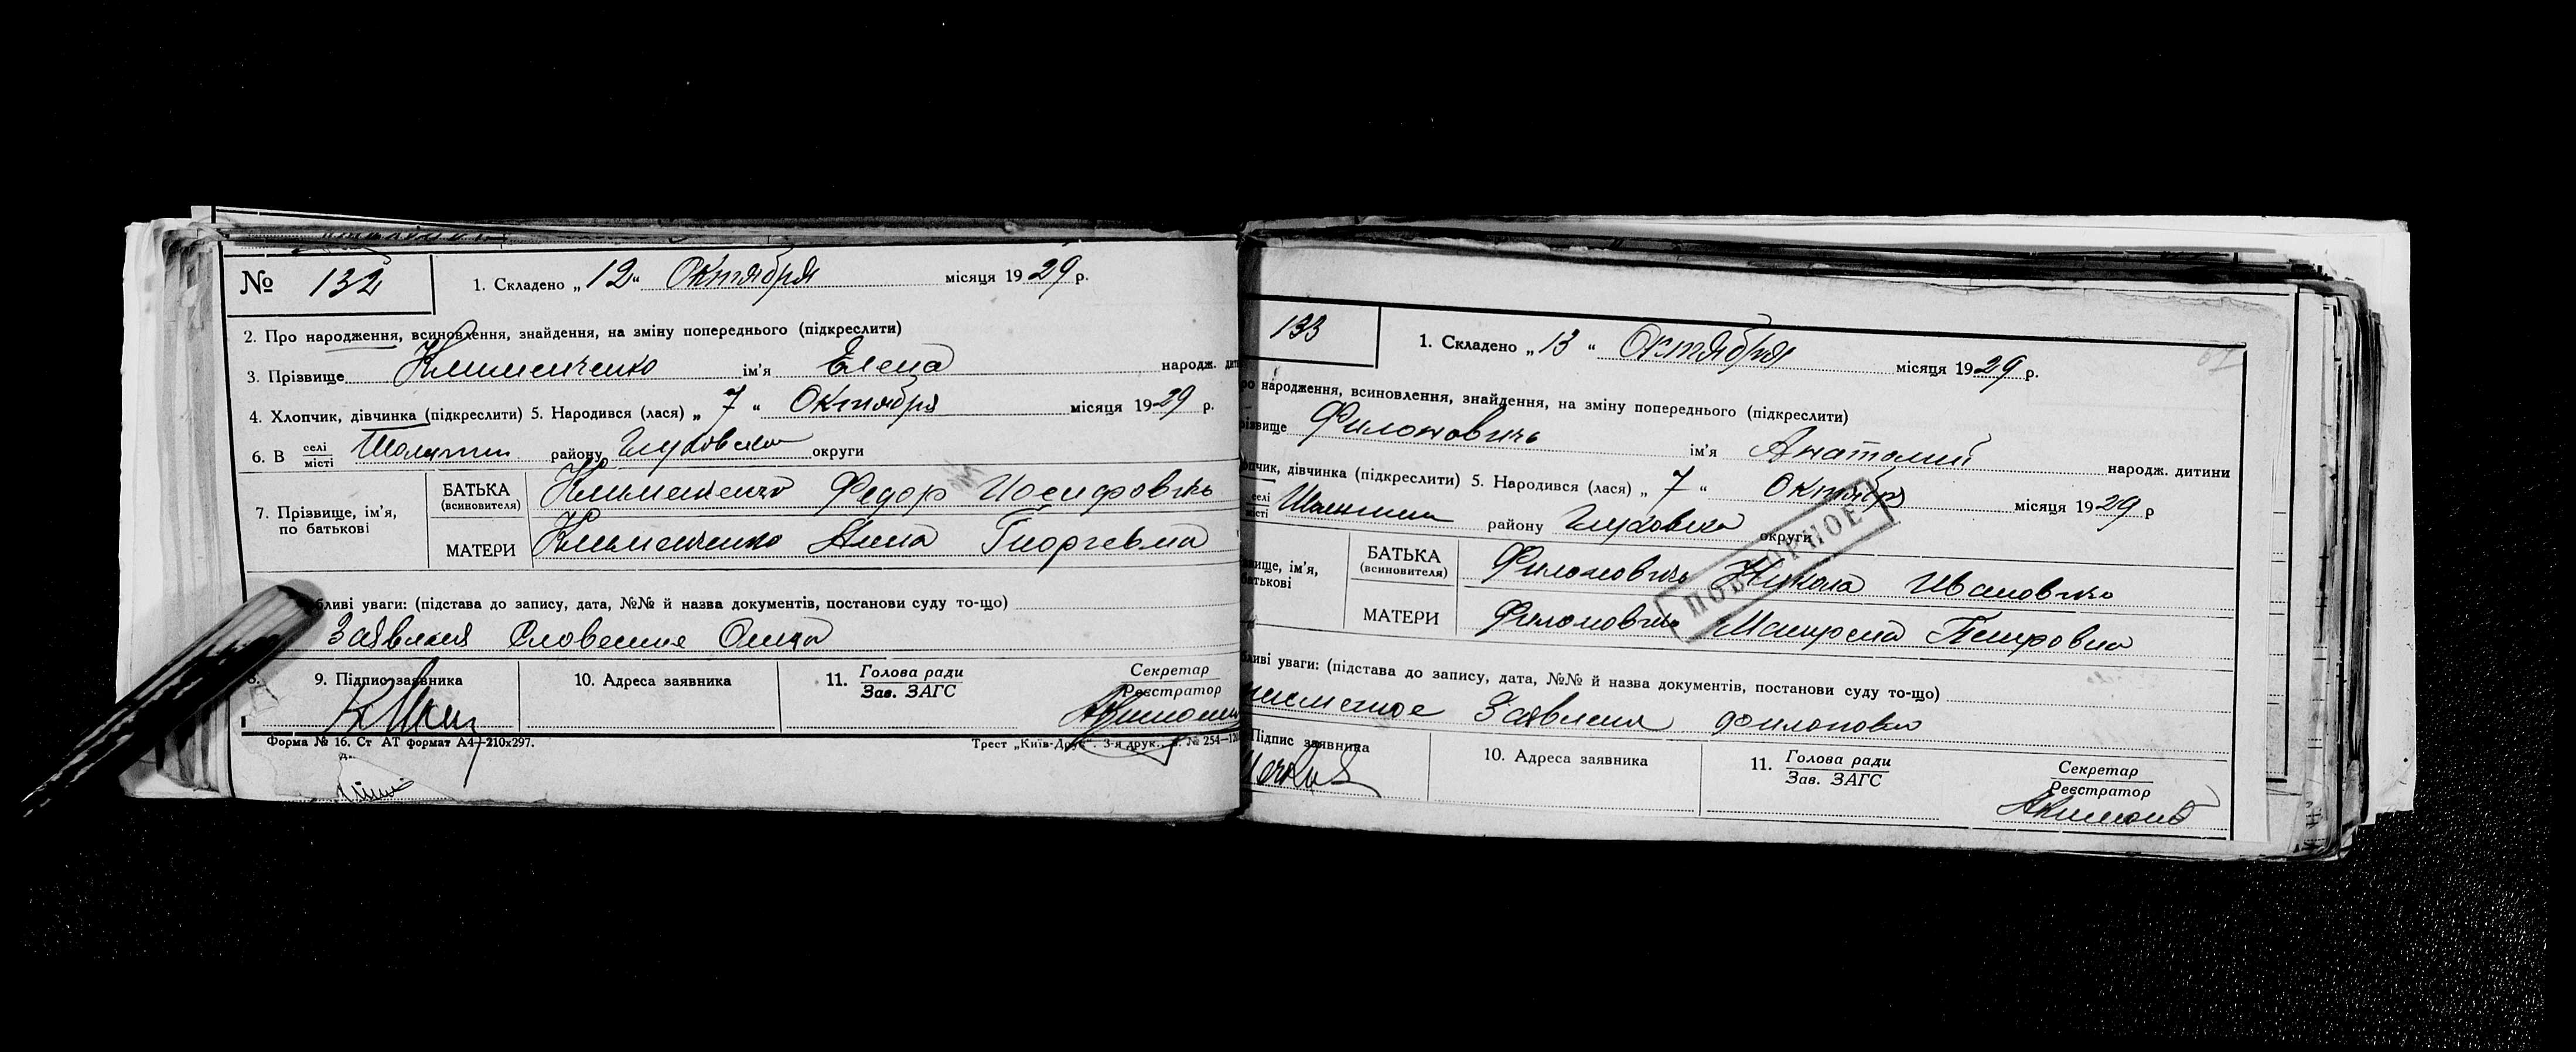 № 132
1. Складено „12“ Октября місяця 1929 р.
2. Про народження, всиновлення, знайдення, на зміну попереднього (підкреслити)
3. Прізвище Клименченко ім'я Елена народж.
4. Хлопчик, дівчинка (підкреслити) 5. Народився (лася) „7“ Октября місяця 1929 р.
6. В селі місті району Глуховска округи
7. Прізвище, ім'я, по батькові
БАТЬКА (всиновителя) Клименченко Федор Иосифовичь
МАТЕРИ Клименченко Анна Георгевна
бливі уваги: (підстава до запису, дата, №№ й назва документів, постанови суду то-що)
Заявления Словесние Отца
9. Підпис заявника
10. Адреса заявника
11. Голова ради Зав. ЗАГС
Секретар Реєстратор
Форма № 16. Ст АТ формат А4—210х297.
Трест „Київ-Друк“. 3-я друк. № 254—
133
1. Складено „13“ Октября місяця 1929 р.
народження, всиновлення, знайдення, на зміну попереднього (підкреслити)
Филоновичь ім'я Анатолий народж. дитини
дівчинка (підкреслити) 5. Народився (лася) „7“ Октября місяця 1929 р
селі місті району Глуховска округи
ім'я,
БАТЬКА (всиновителя) Филоновичь Никола Ивановичь
МАТЕРИ Филоновичь Петровна
ПОВТОРНОЕ
уваги: (підстава до запису, дата, №№ й назва документів, постанови суду то-що)
Заявления
Підпис заявника
10. Адреса заявника
11. Голова ради Зав. ЗАГС
Секретар Реєстратор